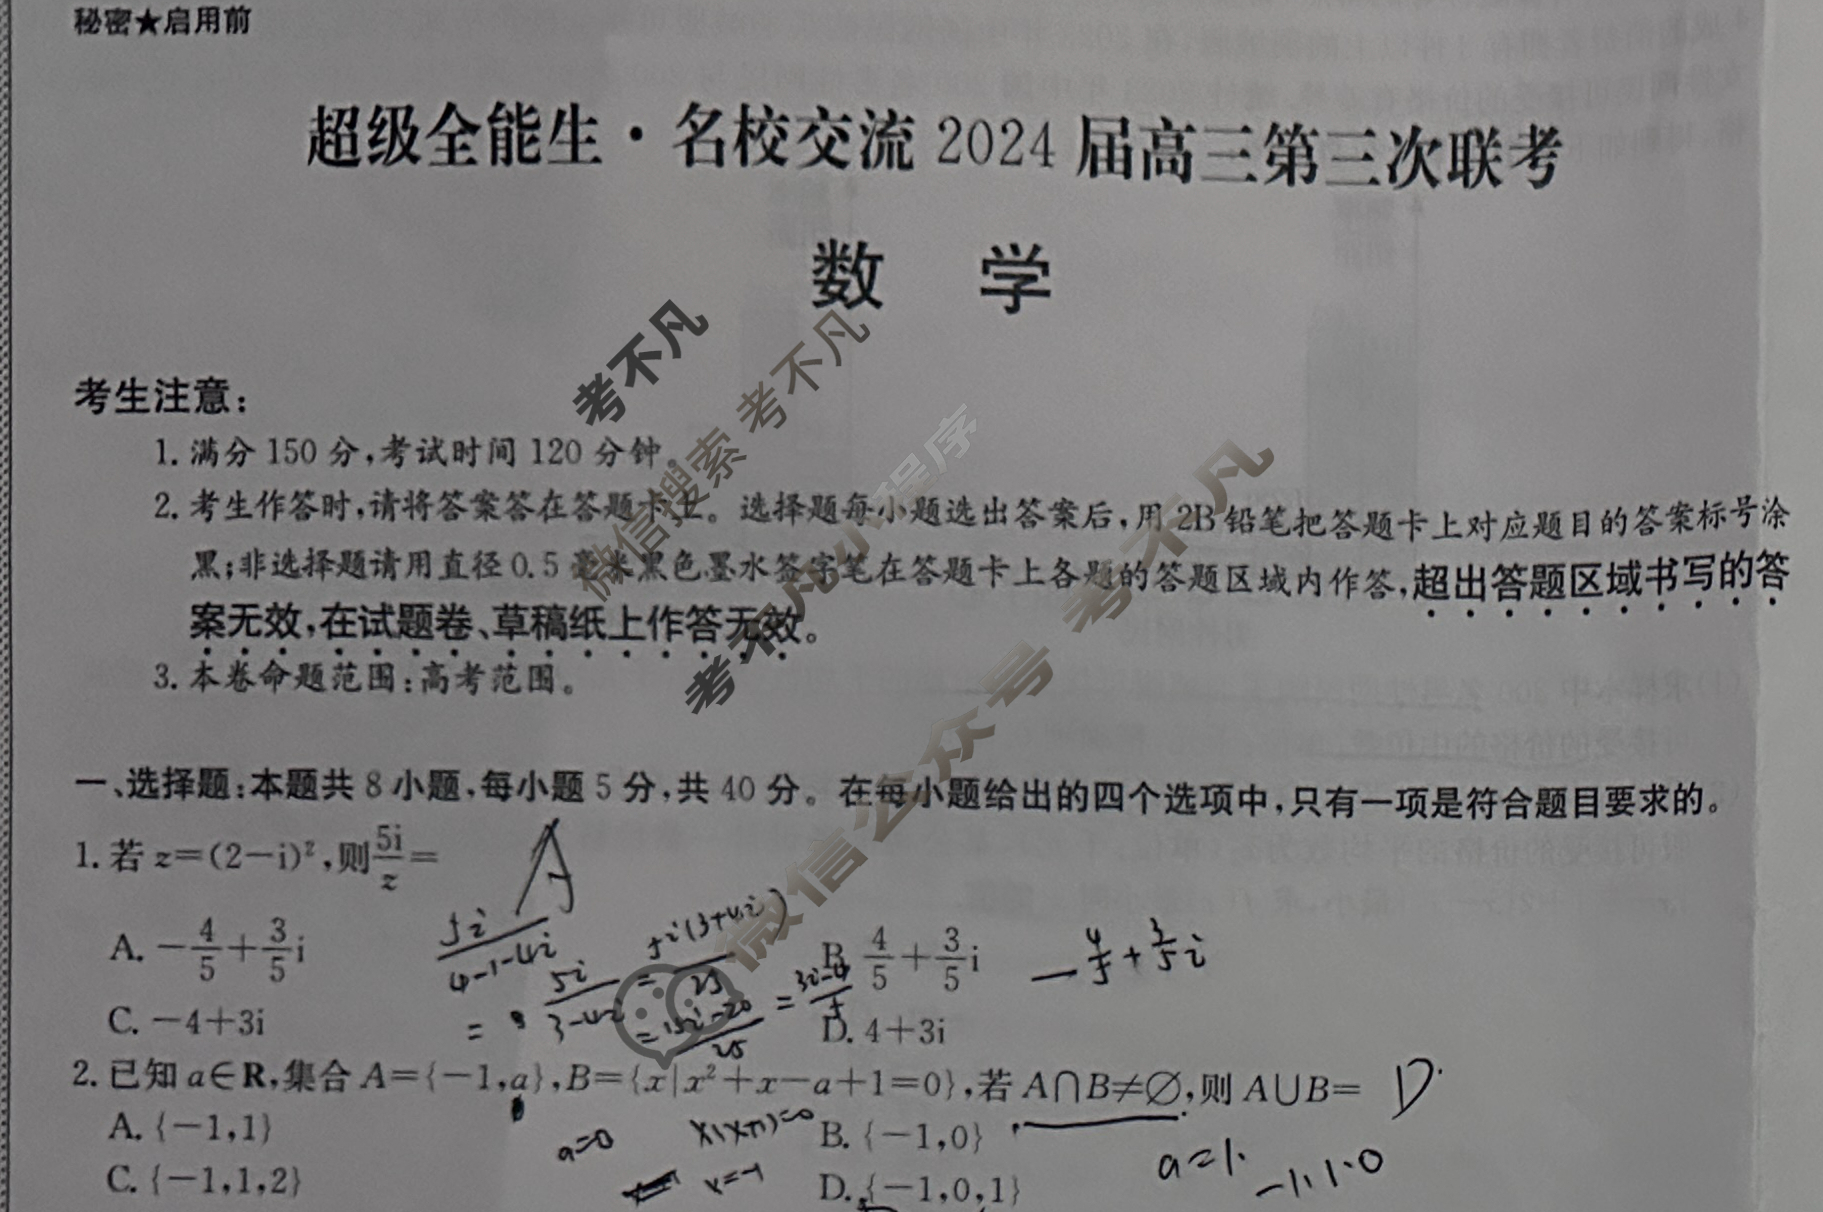 秘密★启用前
超级全能生·名校交流2024届高三第三次联考
数 学
考生注意:
1.满分150分,考试时间120分钟。
2.考生作答时,请将答案答在答题卡上。选择题每小题选出答案后,用2B铅笔把答题卡上对应题目的答案标号涂
黑;非选择题请用直径0.5毫米黑色墨水签字笔在答题卡上各题的答题区域内作答,超出答题区域书写的答
案无效,在试题卷、草稿纸上作答无效。
3.本卷命题范围:高考范围。
考不凡
微信搜索 考不凡
考不凡小程序
微信公众号 考不凡
一、选择题:本题共8小题,每小题5分,共40分。在每小题给出的四个选项中,只有一项是符合题目要求的。
1.若z=(2-i)²,则5i/z= A
A.-4/5+3/5i
B.4/5+3/5i
C.-4+3i
D.4+3i
5i/(4-1-4i)
=5i/(3-4i)=5i(3+4i)/25
=(15i-20)/25=(3i-4)/5
-4/5+3/5i
2.已知a∈R,集合A={-1,a},B={x|x²+x-a+1=0},若A∩B≠∅,则A∪B= D
A.{-1,1}
B.{-1,0}
C.{-1,1,2}
D.{-1,0,1}
a=0
x(x+1)=0
x=-1
a=1.
-1,1.0